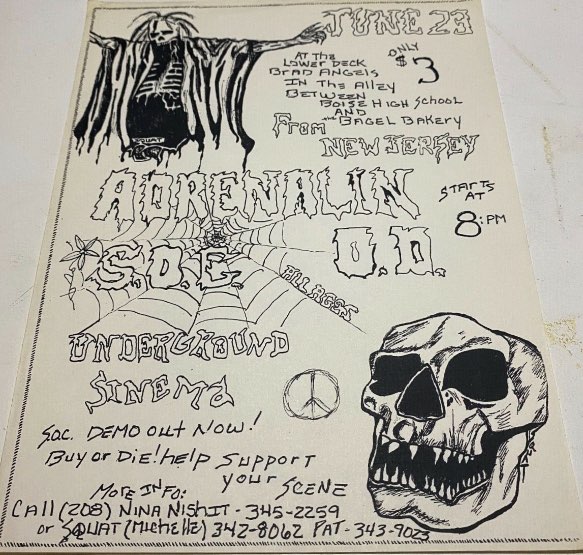 JUNE 23
AT THE
LOWER DECK
BRAD ANGELS
IN THE ALLEY
BETWEEN
BOISE HIGH SCHOOL
AND
THE BAGEL BAKERY
ONLY
$3
FROM
NEW JERSEY
SQUAT
ADRENALIN
O.D.
STARTS
AT
8:PM
S.O.E.
ALL AGES
UNDERGROUND
SINEMA
S.O.C. DEMO OUT NOW!
BUY OR DIE! HELP SUPPORT
YOUR SCENE
MORE INFO:
CALL (208) NINA NISHIT - 345-2259
OR SQUAT (MICHELLE) 342-8062 PAT-343-9023